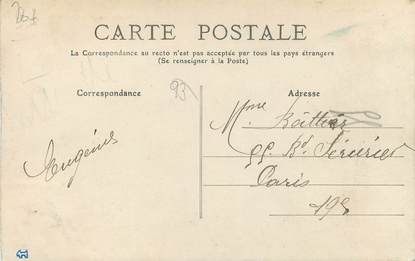 CARTE POSTALE
La Correspondance au recto n'est pas acceptée par tous les pays étrangers
(Se renseigner à la Poste)
Correspondance
Adresse
93
Mme
55 Bd Sérurier
Paris
19e
Eugénie